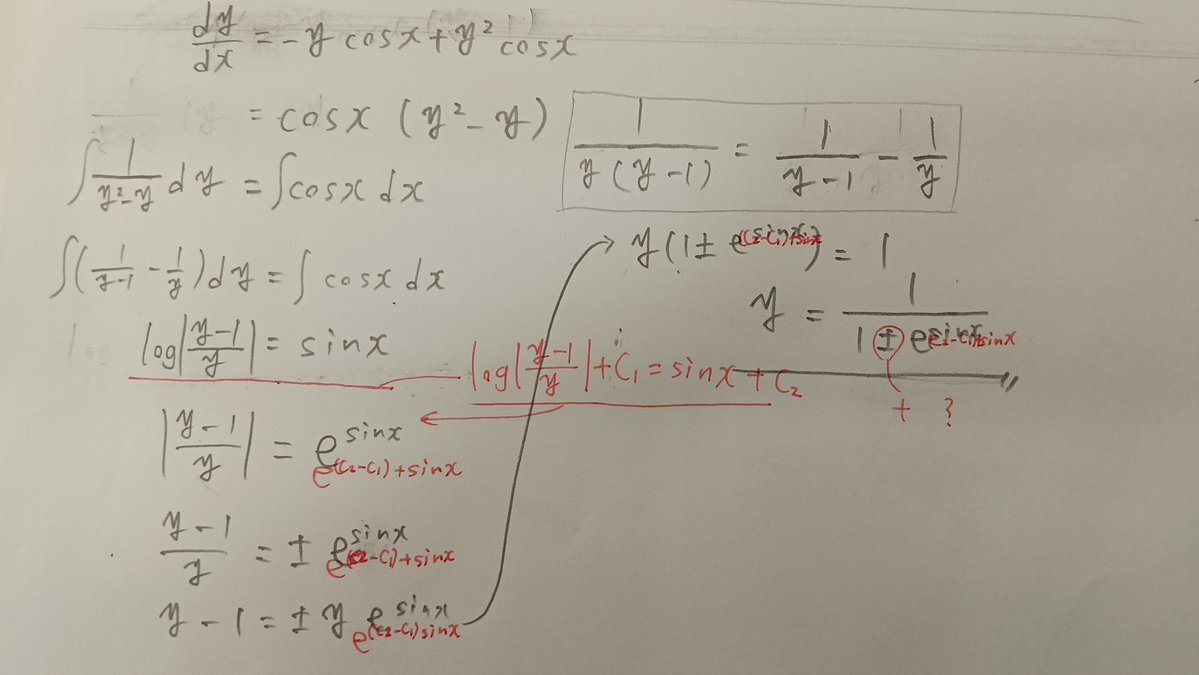 dy/dx = -y cosx + y² cosx
= cosx (y² - y)
1/(y(y-1)) = 1/(y-1) - 1/y
∫ 1/(y²-y) dy = ∫cosx dx
∫(1/(y-1) - 1/y)dy = ∫ cosx dx
log|(y-1)/y| = sinx
log|(y-1)/y| + C₁ = sinx + C₂
|(y-1)/y| = e^sinx
e^(C₂-C₁)+sinx
(y-1)/y = ± e^sinx
e^(C₂-C₁)+sinx
y - 1 = ± y e^sinx
e^(C₂-C₁)sinx
y(1 ± e^(C₂-C₁)+sinx) = 1
y = 1/(1 ± e^(C₂-C₁)+sinx)
+ ?